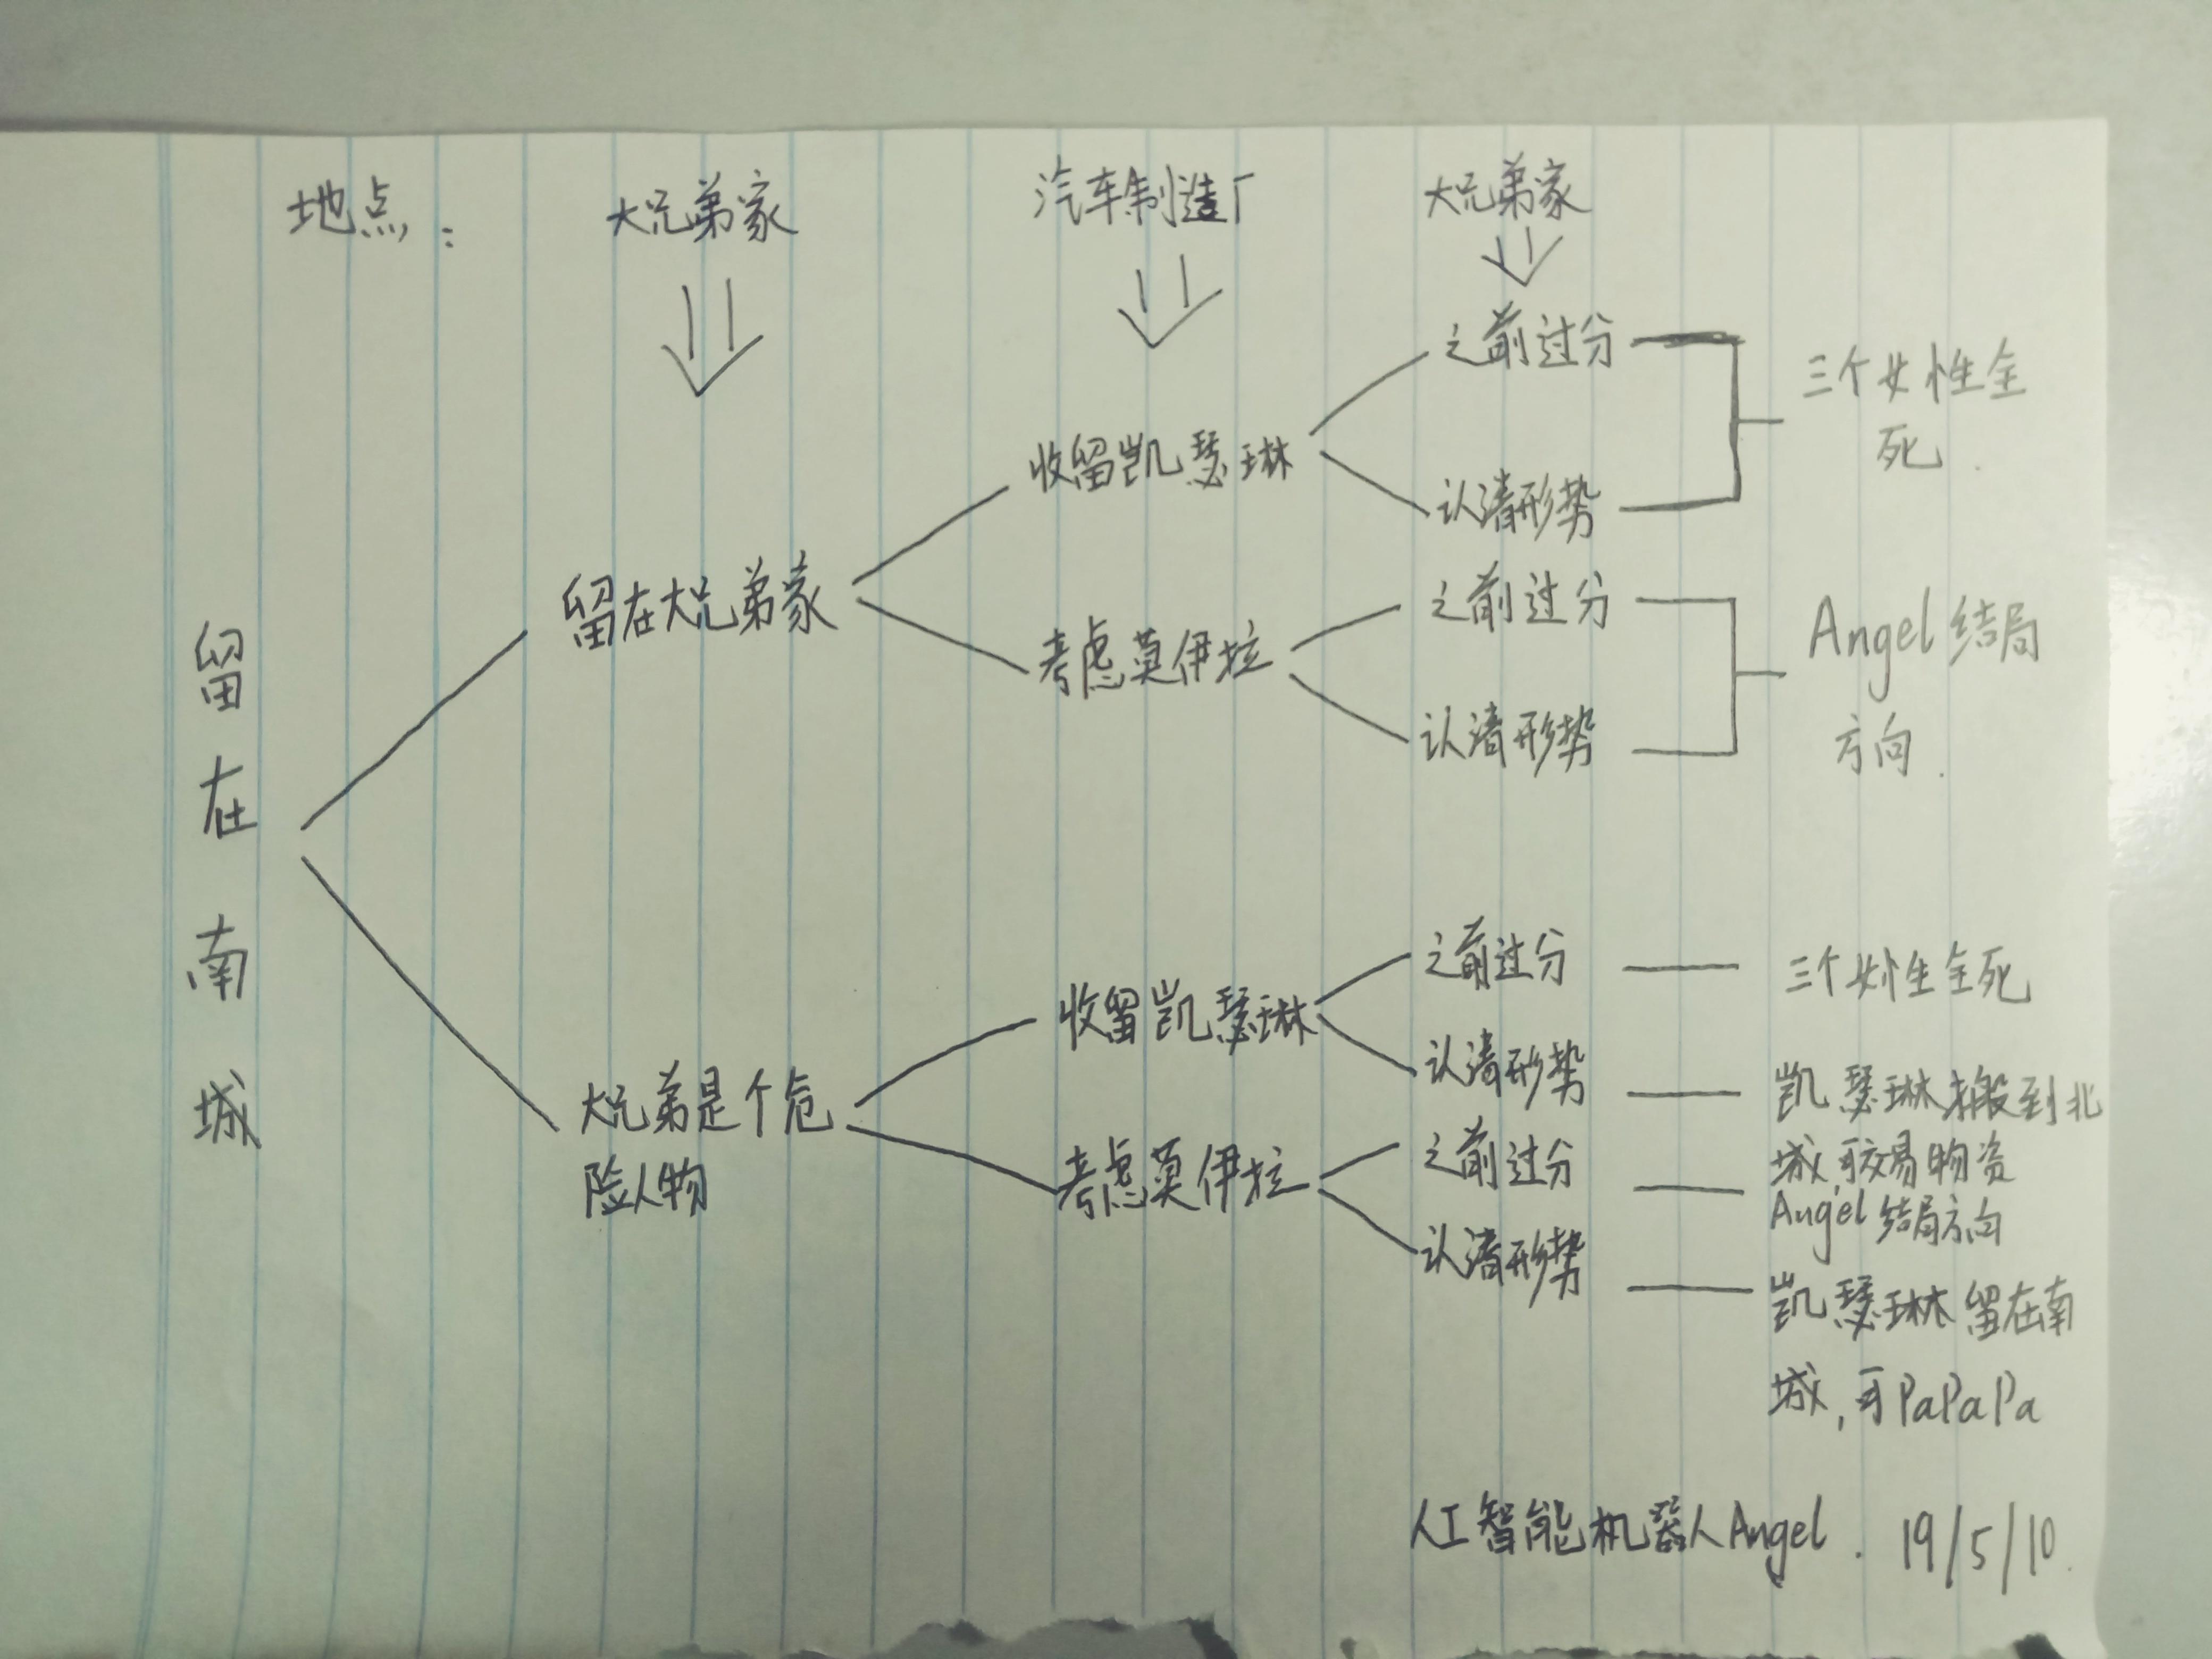 地点：
大兄弟家
汽车制造厂
大兄弟家
留在南城
留在大兄弟家
收留凯瑟琳
之前过分
认清形势
三个女性全
死.
考虑莫伊拉
之前过分
认清形势
Angel结局
方向.
大兄弟是个危
险人物
收留凯瑟琳
之前过分
三个女性全死
认清形势
凯瑟琳搬到北
城,可交易物资
考虑莫伊拉
之前过分
Angel结局方向
认清形势
凯瑟琳留在南
城,可PaPaPa
人工智能机器人Angel. 19/5/10.